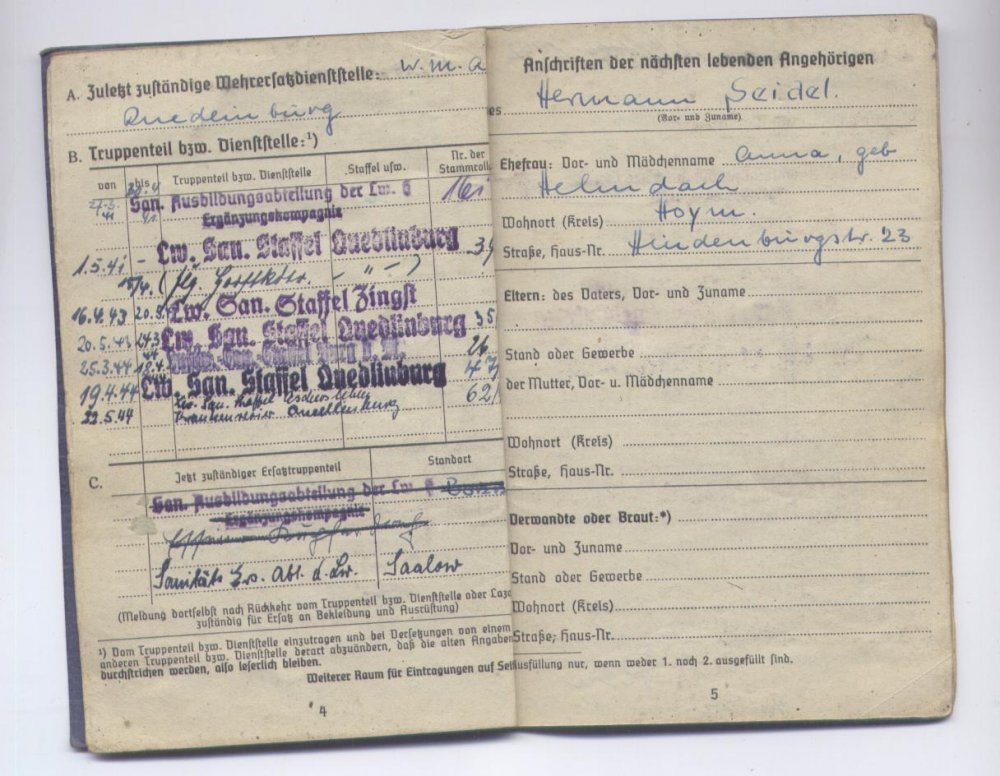 A. Zuletzt zuständige Wehrersatzdienststelle: W. M. A
Quedlinburg
B. Truppenteil bzw. Dienststelle:¹)
von bis Truppenteil bzw. Dienststelle Staffel usw. Nr. der Stammrolle
San. Ausbildungsabteilung der Lw. 6 16
Ergänzungskompagnie
1.5.41 - Lw. San. Staffel Quedlinburg
16.4.43 Lw. San. Staffel Zingst
20.5.43 Lw. San. Staffel Quedlinburg 35
25.3.44
19.4.44 Lw. San. Staffel Quedlinburg
22.5.44 62
C. Jetzt zuständiger Ersatztruppenteil Standort
San. Ausbildungsabteilung der Lw.
Ergänzungskompagnie
Sanitäts Ers. Abt. d. Lw. Saalow
(Meldung dortselbst nach Rückkehr vom Truppenteil bzw. Dienststelle oder Laza
zuständig für Ersatz an Bekleidung und Ausrüstung)
¹) Vom Truppenteil bzw. Dienststelle einzutragen und bei Versetzungen von einem
anderen Truppenteil bzw. Dienststelle derart abzuändern, daß die alten Angaben
durchstrichen werden, also leserlich bleiben.
Weiterer Raum für Eintragungen auf Sei
4
Anschriften der nächsten lebenden Angehörigen
es Hermann Seidel.
(Vor- und Zuname)
Ehefrau: Vor- und Mädchenname Anna, geb
Helmdach
Wohnort (Kreis) Hoym.
Straße, Haus-Nr. Hindenburgstr. 23
Eltern: des Vaters, Vor- und Zuname
Stand oder Gewerbe
der Mutter, Vor- u. Mädchenname
Wohnort (Kreis)
Straße, Haus-Nr.
Verwandte oder Braut:*)
Vor- und Zuname
Stand oder Gewerbe
Wohnort (Kreis)
Straße, Haus-Nr.
Ausfüllung nur, wenn weder 1. noch 2. ausgefüllt sind.
5